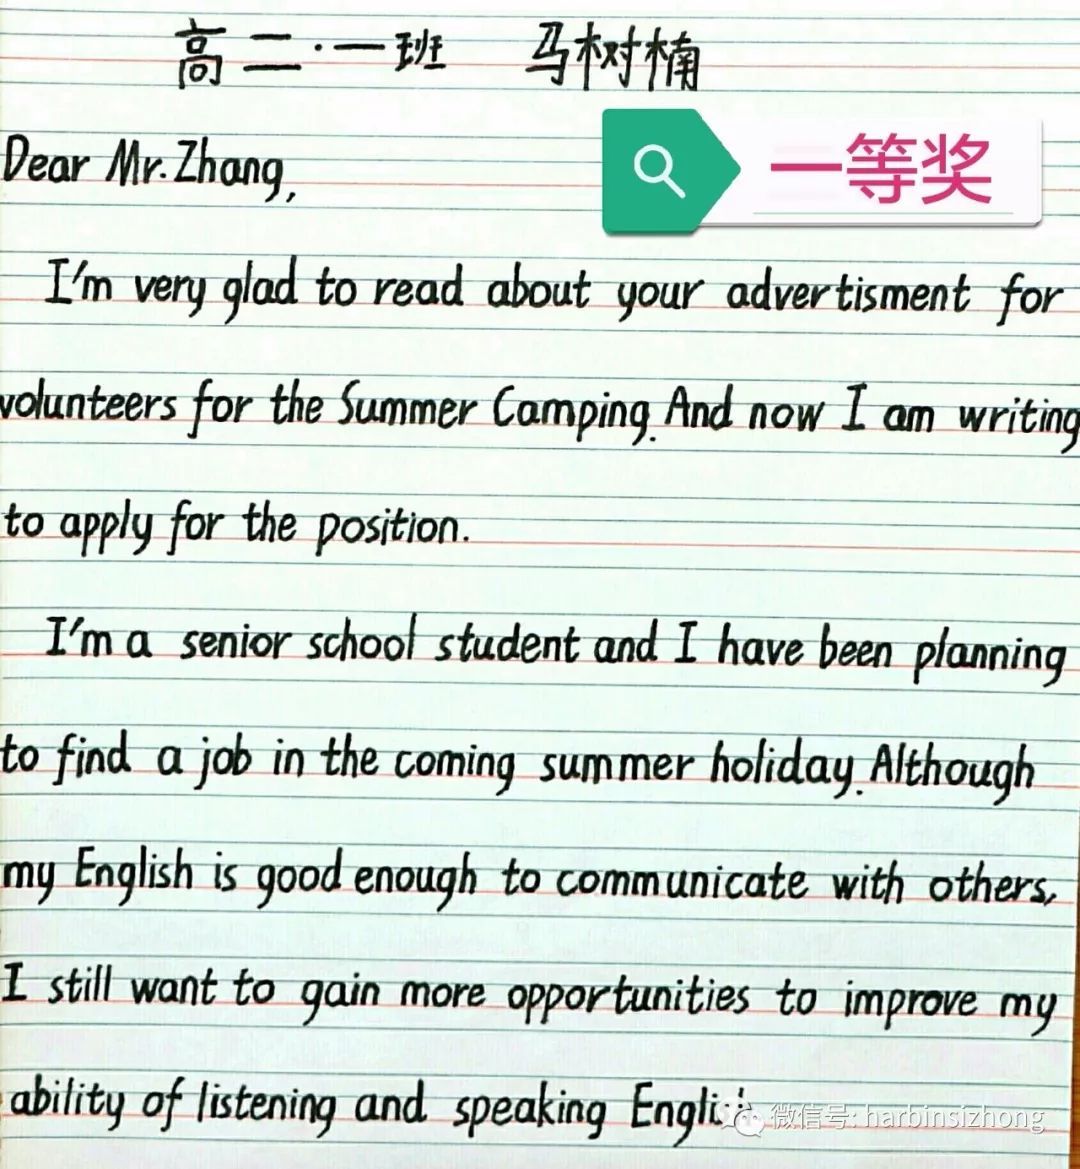 高二·一班 马树楠
一等奖
Dear Mr. Zhang,
I'm very glad to read about your advertisment for
volunteers for the Summer Camping. And now I am writing
to apply for the position.
I'm a senior school student and I have been planning
to find a job in the coming summer holiday. Although
my English is good enough to communicate with others,
I still want to gain more opportunities to improve my
ability of listening and speaking English
微信号: harbinsizhong